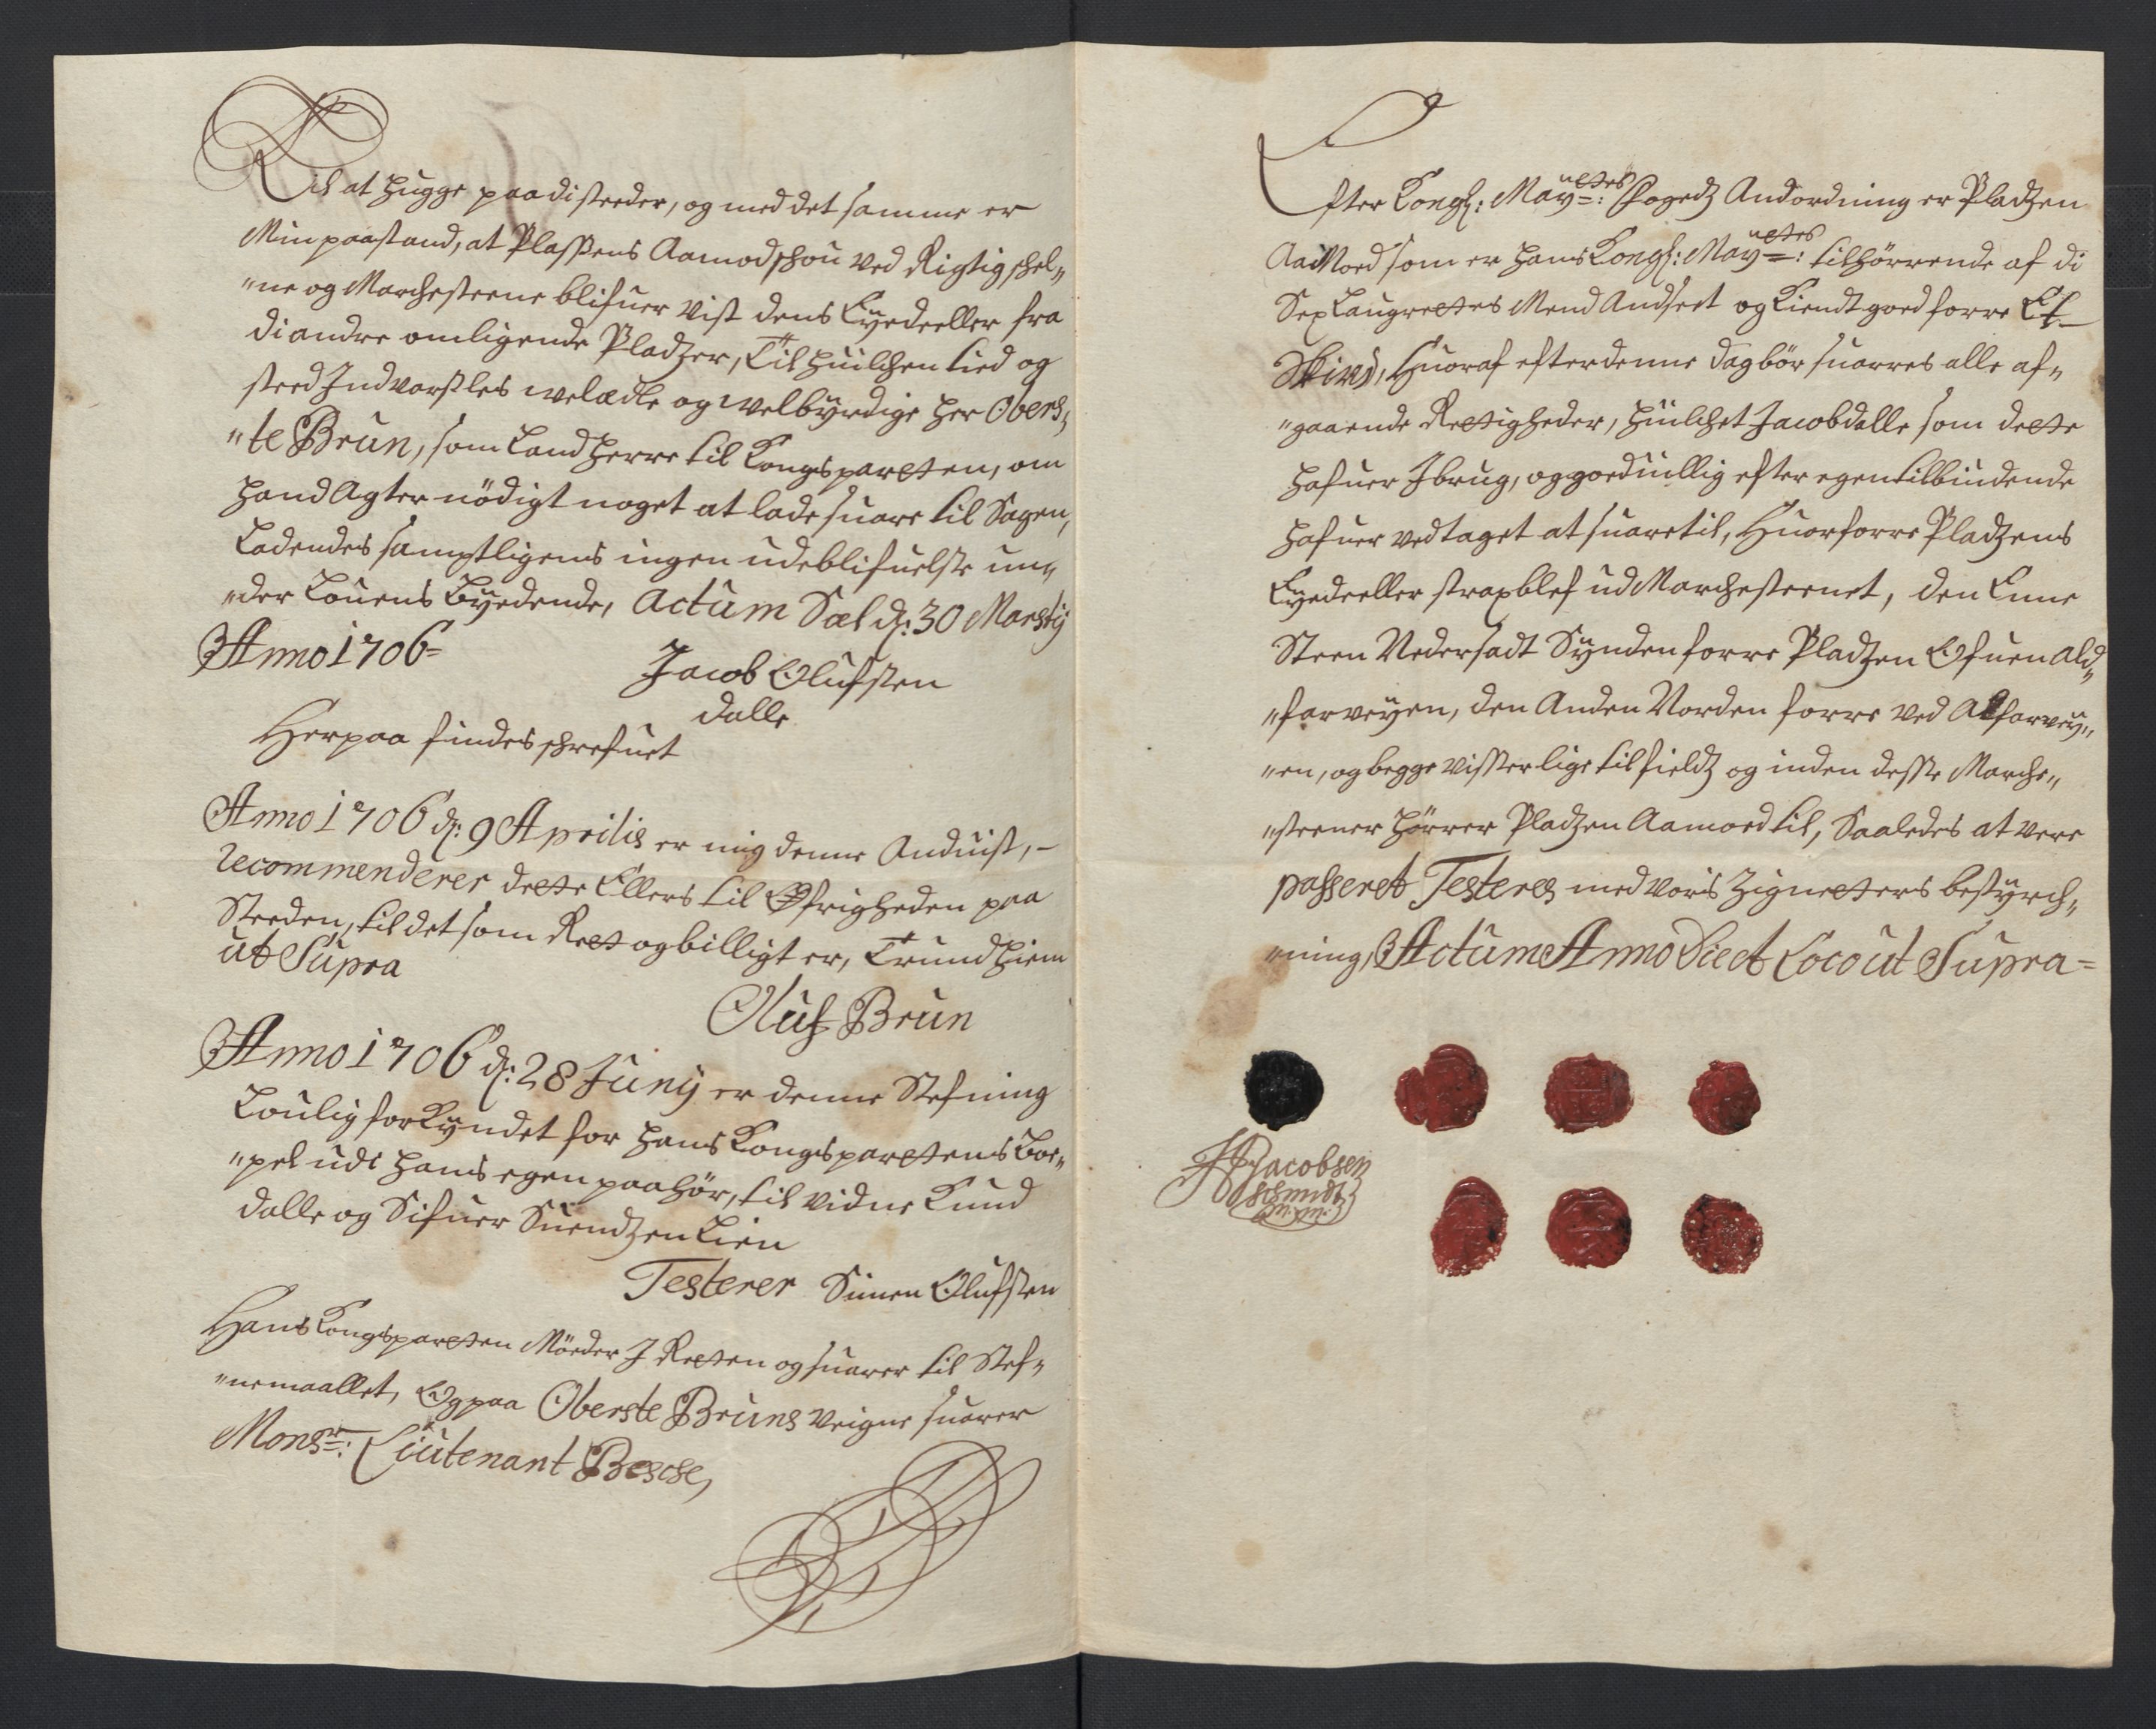 Til at hugge paa di steeder, og med det samme er
Min paastand, at Plassens Aamodschou ved Rigtig schel„
„ne og Marchesteene blifuer vist dens Eyedeeller fra
di andre omligende Pladzer, Til huilchen tied og
steed Indvarsles welædle og welbyrdige her Obers„
„te Brun, som Landherre til Kongsparten, om
hand Agter nödigt noget at lade suare til Sagen,
Ladendes samptligens ingen udeblifuelse un„
„der Louens Byedende, Actum Sæl d: 30 Marty
Anno 1706=
Jacob Olufsen
dalle
Herpaa findes schrefuet
Anno 1706 d: 9 Aprilis er mig denne Anduist,
recommenderer dette Ellers til Øfrigheden paa
Steeden, til det som Ret og billigt er, Trundhiem
ut Supra
Oluf Brun
Anno 1706 d: 28 Juny er denne Stefning
Loulig forkyndet for hans Kongsparten
„pel udi hans egen paahör, til vidne Knud
dalle og Sifuer Suendzen Lien
Testerer Simen Olufsen
Hans Kongsparten Möeder J Retten og suarer til Stef„
„nemaallet, Og paa Oberste Bruns veigne suarer
Monsr: Liutenant Besche,
Efter Kongl: Mayttes: Fogedz Andordning er Pladzen
Aamoed som er hans Kongl: Mayttes: tilhörrende af di
Sex Laugrettes Mend Andseet og Kiendt goed forre Et
Skind, Huoraf efter denne dag bör suarres alle af„
„gaaende Rettigheder, huilchet Jacob dalle som dette
hafuer J brug, og goeduillig efter egen tilbindende
hafuer vedtaget at suare til, Huorforre Pladzens
Eyedeeller strax blef ud Marchesteenet, den Eene
Steen Nedersadt Synden forre Pladzen Ofuen Ald„
„farveyen, den Anden Norden forre ved Alfarvey„
„en, og begge visser lige til fieldz og inden desse Marche„
„steener hörrer Pladzen Aamoed til, Saaledes at vere
passeret Testeres med voris Zigneters bestyrch„
„ning, Actum Anno Die et Loco ut Supra=
Jacobsen
Schmidt
m: pm: